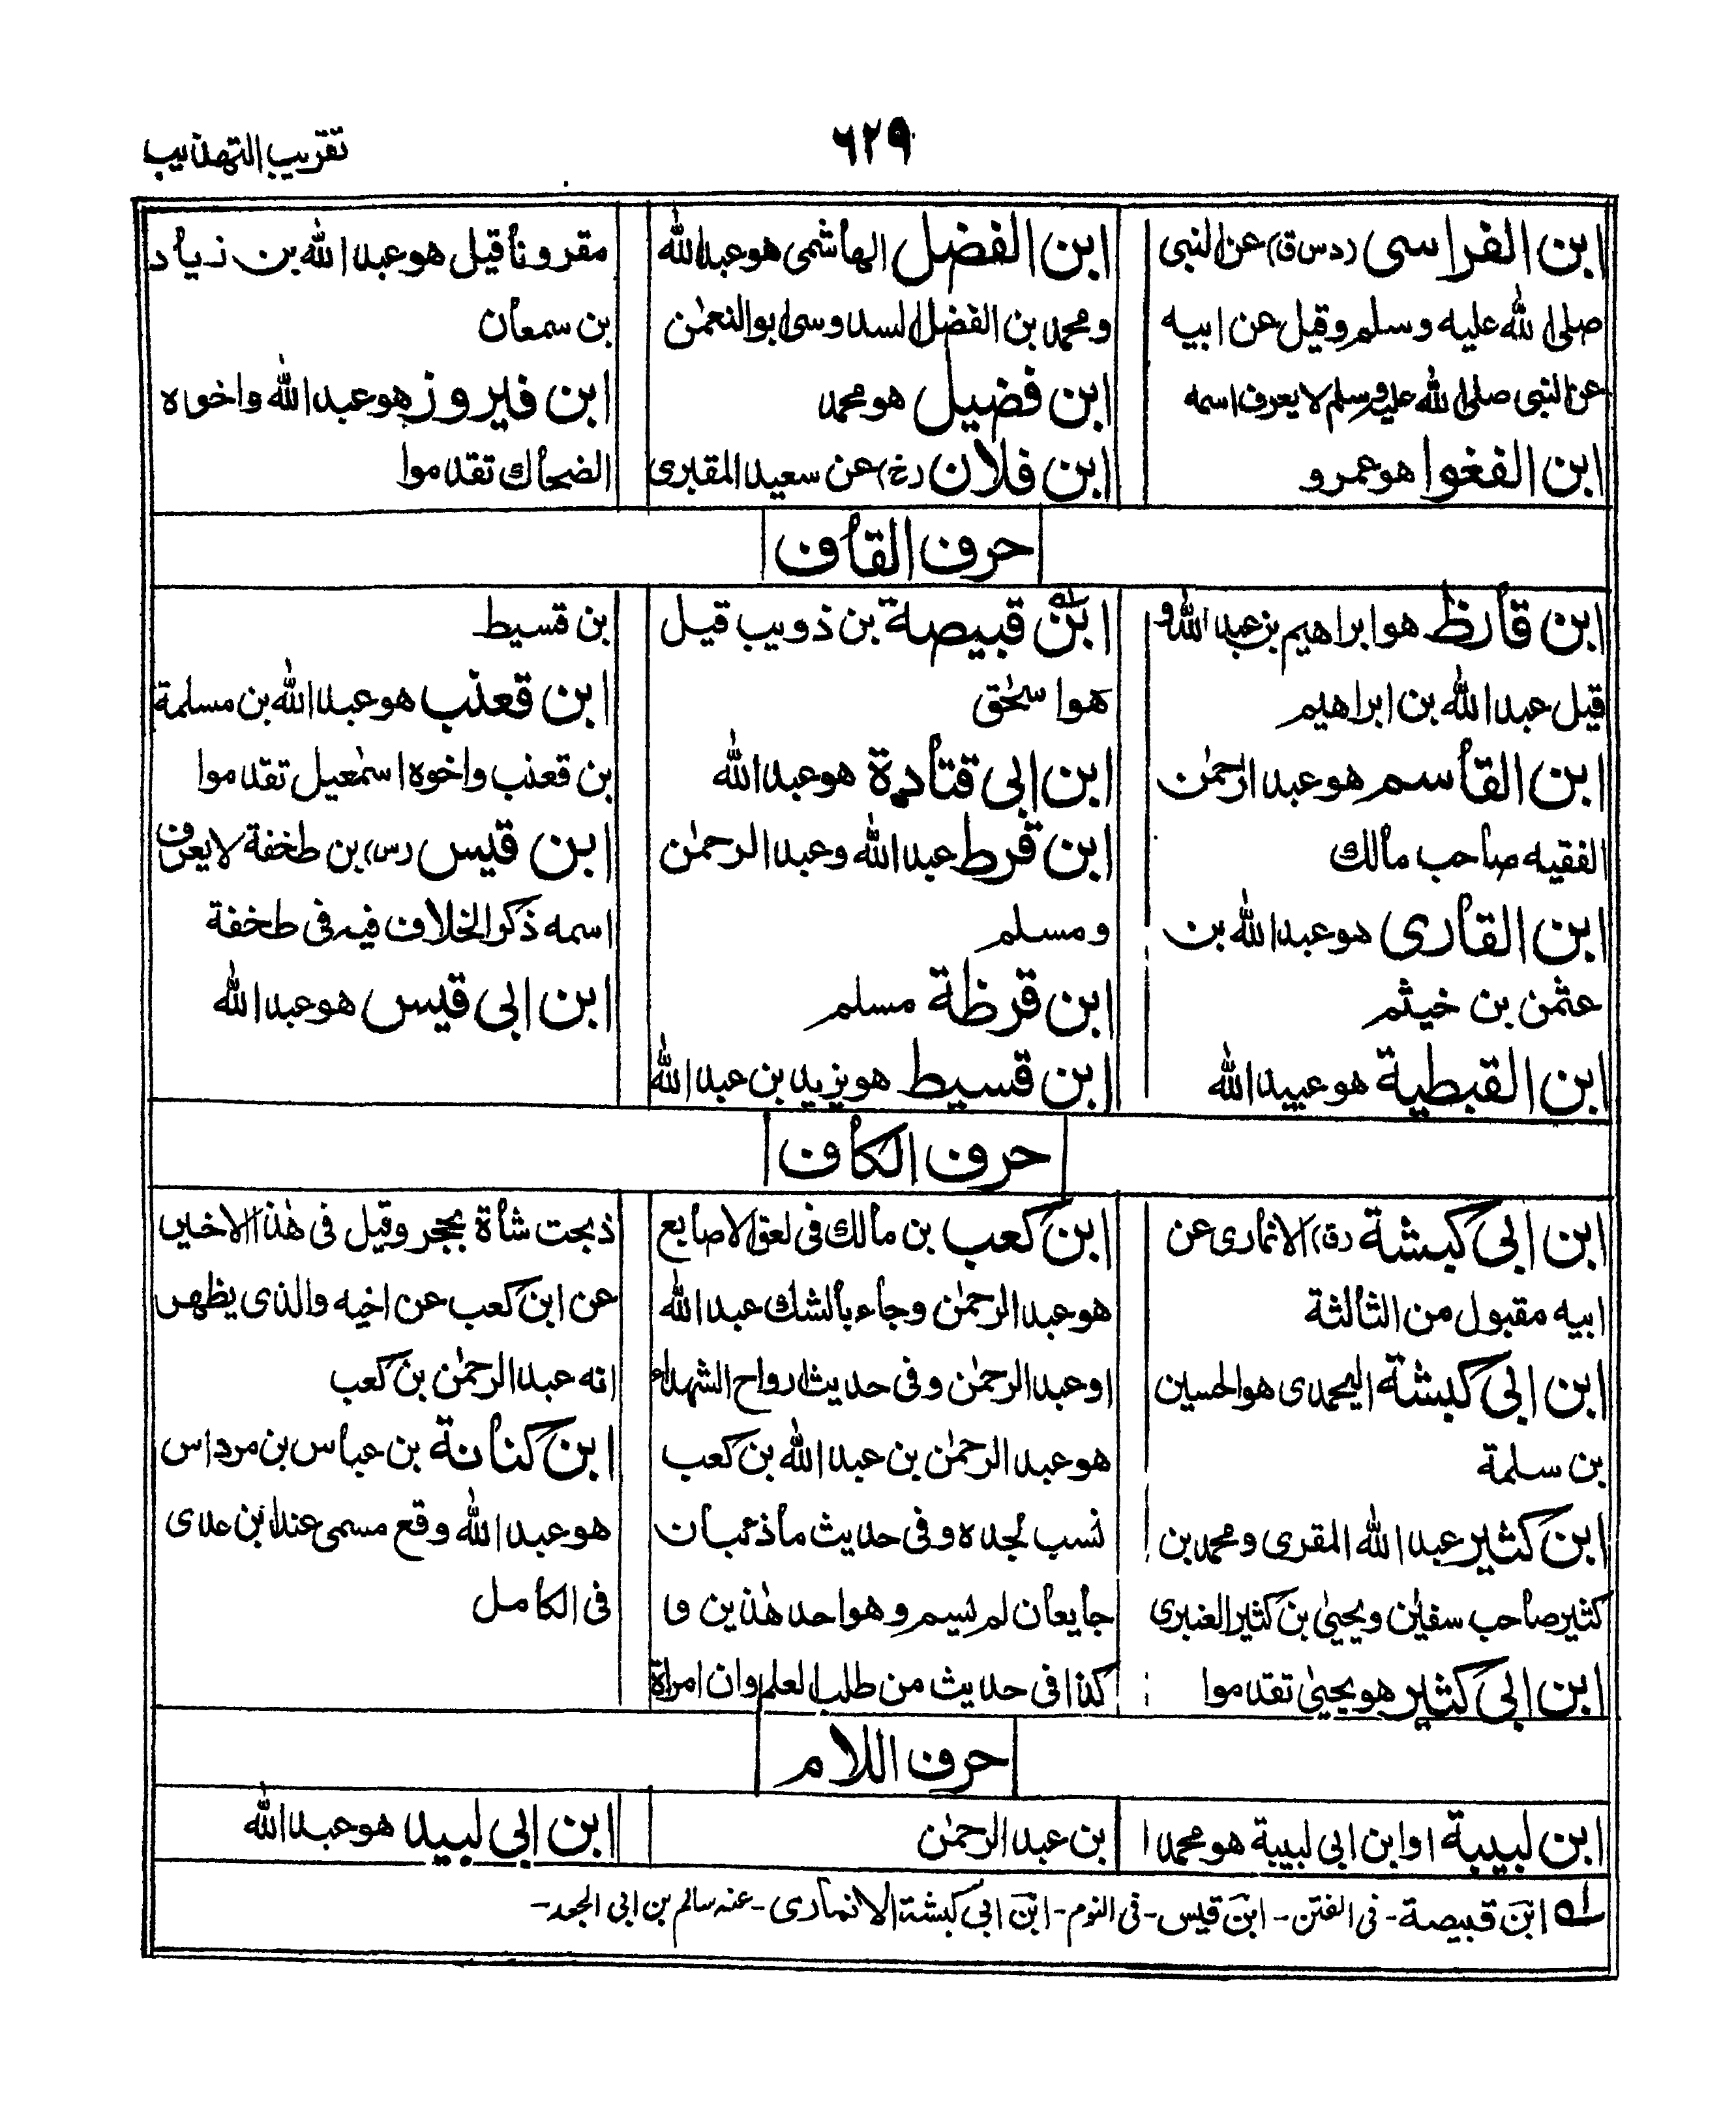 تقريب التهذيب
٦٢٩
ابن الفراسى (دس ق) عن النبى
صلى الله عليه وسلم وقيل عن ابيه
عن النبى صلى الله عليه وسلم لا يعرف اسمه
ابن الفغوا هو عمرو
ابن الفضل الهاشمى هو عبد الله
و محمد بن الفضل السدوسى ابو النعمٰن
ابن فضيل هو محمد
ابن فلان (خ) عن سعيد المقبرى
مقرونا قيل هو عبد الله بن زياد
بن سمعان
ابن فيروز هو عبد الله واخوه
الضحاك تقدموا
حرف القاف
ابن قارظ هو ابراهيم بن عبد الله و
قيل عبد الله بن ابراهيم
ابن القاسم هو عبد الرحمٰن
الفقيه صاحب مالك
ابن القارى هو عبد الله بن
عثمٰن بن خيثم
ابن القبطية هو عبيد الله
ابن قبيصة بن ذويب قيل
هو اسحٰق
ابن ابى قتادة هو عبد الله
ابن قرط عبد الله وعبد الرحمٰن
ومسلم
ابن قرظة مسلم
ابن قسيط هو يزيد بن عبد الله
بن قسيط
ابن قعنب هو عبد الله بن مسلمة
بن قعنب واخوه اسمٰعيل تقدموا
ابن قيس (س) بن طخفة لا يعرف
اسمه ذكر الخلاف فيه فى طخفة
ابن ابى قيس هو عبد الله
حرف الكاف
ابن ابى كبشة (ق) الانمارى عن
ابيه مقبول من الثالثة
ابن ابى كبشة اليحمدى هو الحسين
بن سلمة
ابن كثير عبد الله المقرى و محمد بن
كثير صاحب سفيٰن ويحيىٰ بن كثير العنبرى
ابن ابى كثير هو يحيىٰ تقدموا
ابن كعب بن مالك فى لعق الاصابع
هو عبد الرحمٰن وجاء بالشك عبد الله
او عبد الرحمٰن وفى حديث ارواح الشهداء
هو عبد الرحمٰن بن عبد الله بن كعب
نسب لجده وفى حديث ما ذئبان
جايعان لم يسم وهو احد هٰذين و
كذا فى حديث من طلب العلم وان امراة
ذبحت شاة بحجر وقيل فى هٰذا الاخير
عن ابن كعب عن اخيه والذى يظهر
انه عبد الرحمٰن بن كعب
ابن كنانة بن عباس بن مرداس
هو عبد الله وقع مسمى عند ابن عدى
فى الكامل
حرف اللام
ابن لبيبة او ابن ابى لبيبة هو محمد
بن عبد الرحمٰن
ابن ابى لبيد هو عبد الله
له ابن قبيصة - فى الفتن - ابن قيس - فى النوم - ابن ابى كبشة الانمارى - عنه سالم بن ابى الجعد -